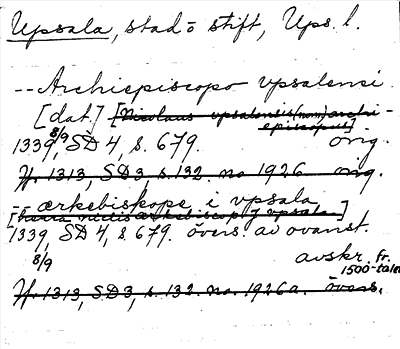 Upsala, stad o stift, Ups. l.
-- Archiepiscopo vpsalensi
[dat.] [Nicolaus vpsalensis (nom) archi-
episcopus]
1339 8/9, SD 4, s. 679. orig.
Jf. 1313, SD 3, s. 132. no 1926 orig.
-- ærkebiskope i vpsala
[herra nielis ærkebiscop j vpsala]
1339, SD 4, s. 679. övers. av ovanst.
8/9 avskr. fr.
1500-talet
Jf. 1313, SD 3, s. 132. no. 1926a. övers.